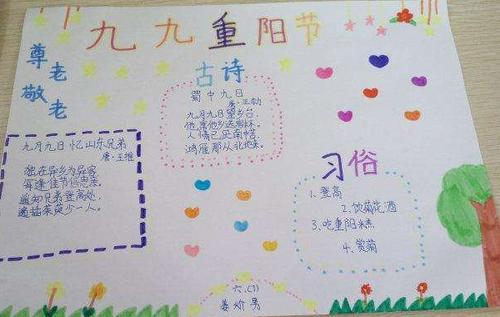 九九重阳节
尊老
敬老
古诗
蜀中九日
唐·王勃
九月九日望乡台，
他席他乡送客杯。
人情已厌南中苦，
鸿雁那从北地来。
九月九日忆山东兄弟
唐·王维
独在异乡为异客
每逢佳节倍思亲。
遥知兄弟登高处，
遍插茱萸少一人。
习俗
1.登高
2.饮菊花酒
3.吃重阳糕
4.赏菊
六.(1)